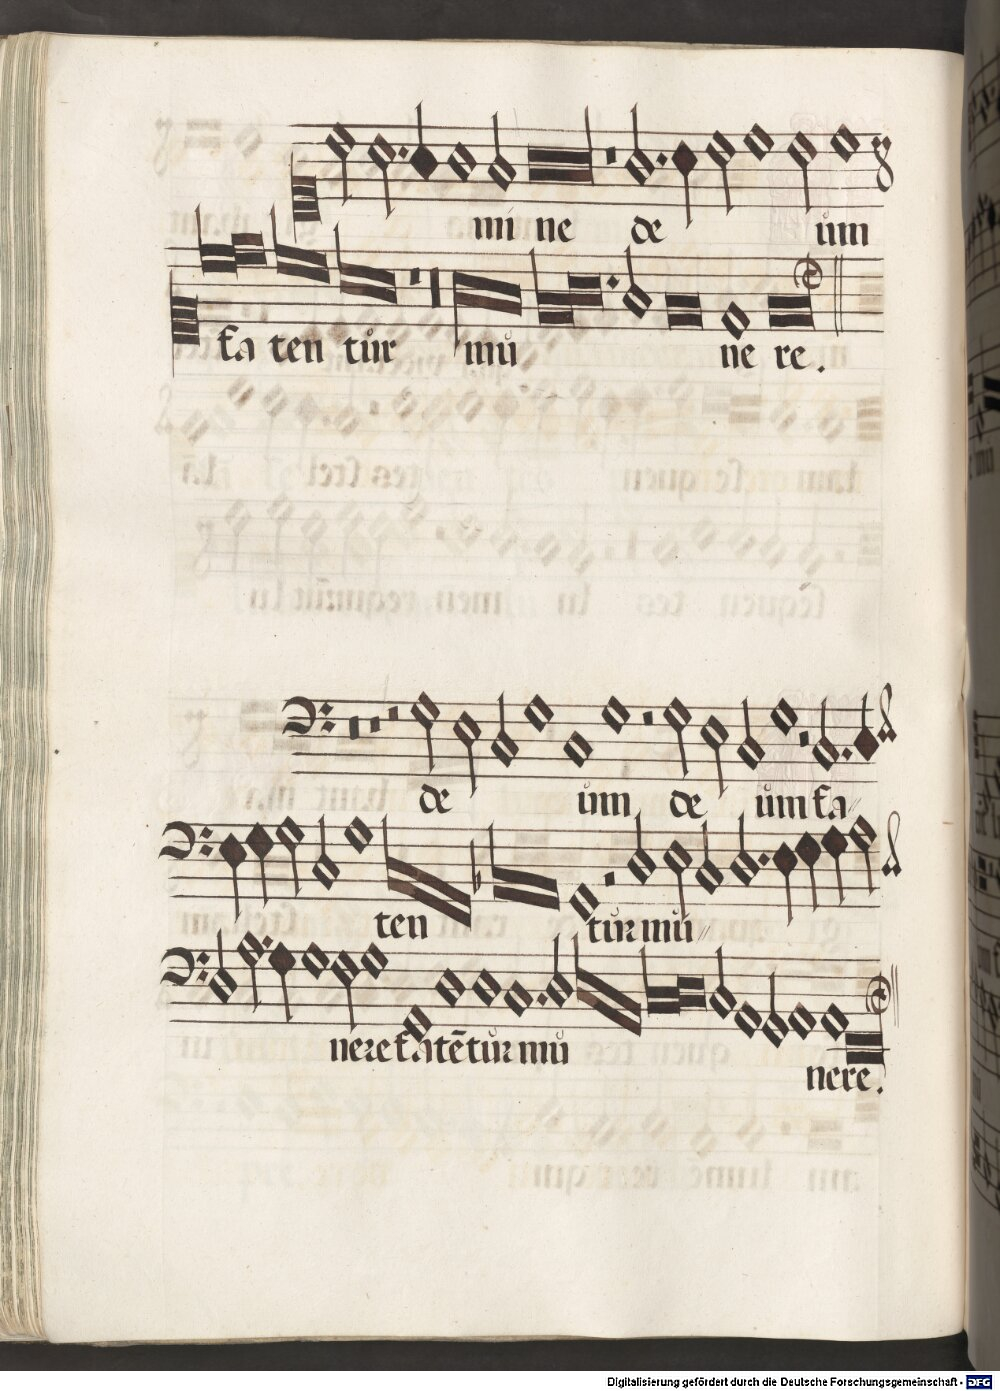 mi ne de um
fa ten tůr mů ne re.
de ům de ům fa
ten tůr mů
nere fa tē tůr mů
nere.
Digitalisierung gefördert durch die Deutsche Forschungsgemeinschaft - DFG